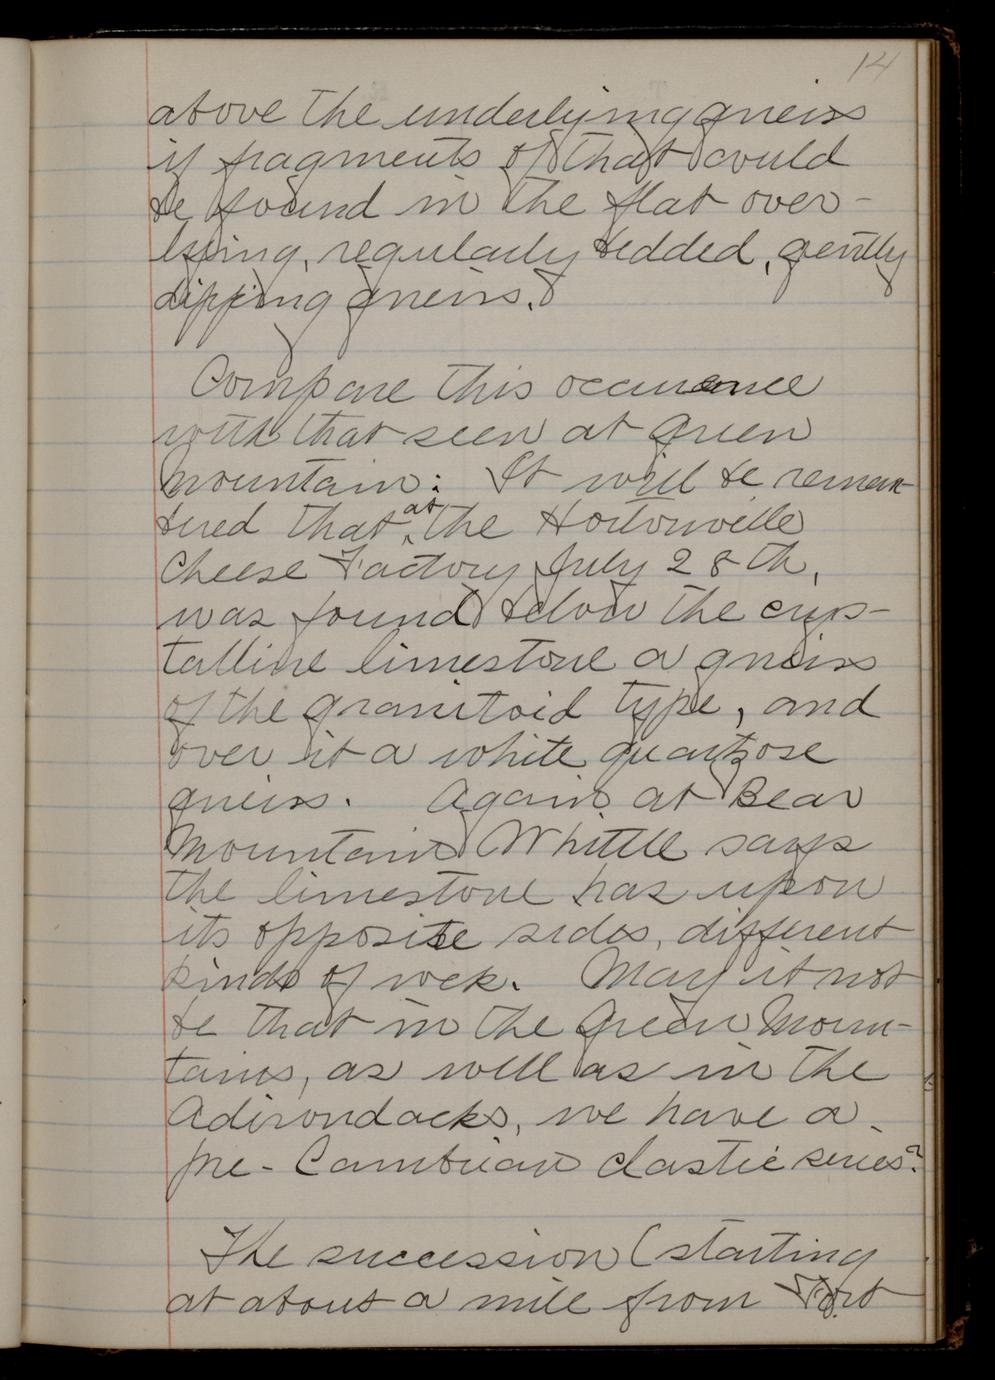 14
above the underlying gneiss
if fragments of that could
be found in the flat over-
lying, regularly bedded, gently
dipping gneiss.
Compare this occurrence
with that seen at Green
Mountain: It will be remem-
bered that at the Hortonville
Cheese Factory July 28th,
was found below the crys-
talline limestone a gneiss
of the granitoid type, and
over it a white quartzose
gneiss. Again at Bear
Mountain Whittle says
the limestone has upon
its opposite sides, different
kinds of rock. May it not
be that in the Green Moun-
tains, as well as in the
Adirondacks, we have a
pre-Cambrian clastic series?
The succession (starting
at about a mile from Port